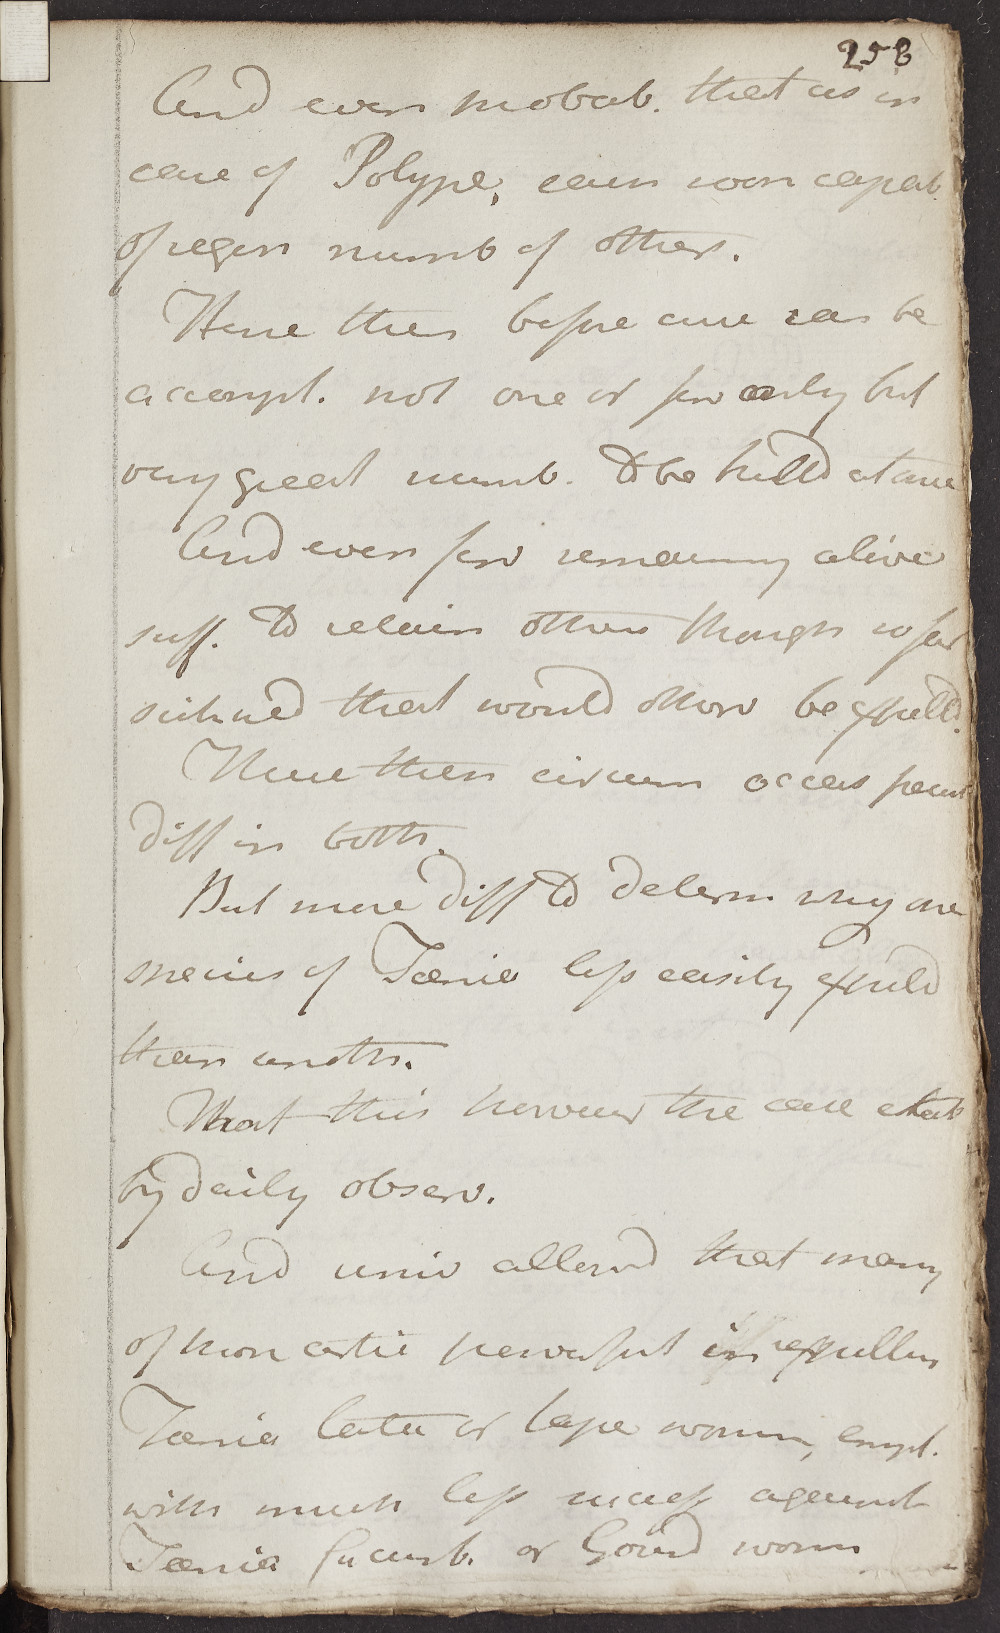 258
And even probab. that as in
case of Polype, each worm capab.
of regen numb of others.
Hence then before cure can be
accompl. not one or few only but
very great numb. to be killd at once
And even few remaining alive
suff. to retain others though so far
sickned that would otherw be expelld.
These then circum occas pecul
diff in both.
But more diff to determ why one
species of Taenia less easily expeld
than anoth.
That this however the case establ
by daily observ.
And univ allowd that many
of most active powerful in expelling
Taenia lata or tape worm, empl.
with much less success against
Taenia Cucurb. or Gourd worm